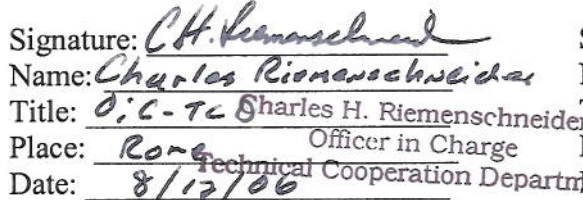 Signature: C.H. Riemenschneid
Name: Charles Riemenschneider
Title: OiC-TCD Charles H. Riemenschneider
Place: Rome Officer in Charge
Technical Cooperation Departm
Date: 8/12/06